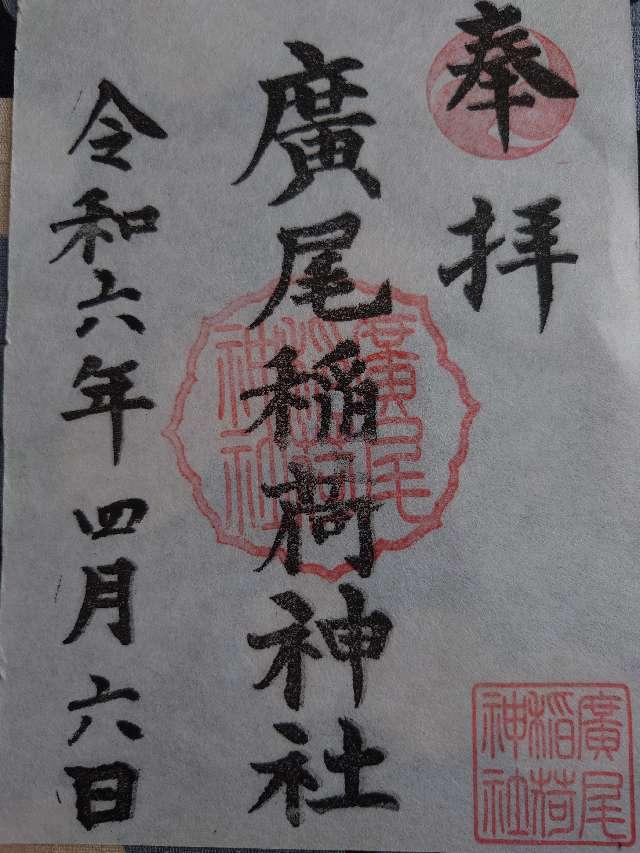 奉拝
廣尾稲荷神社
令和六年四月六日
廣尾
稲荷
神社
廣尾
稲荷
神社